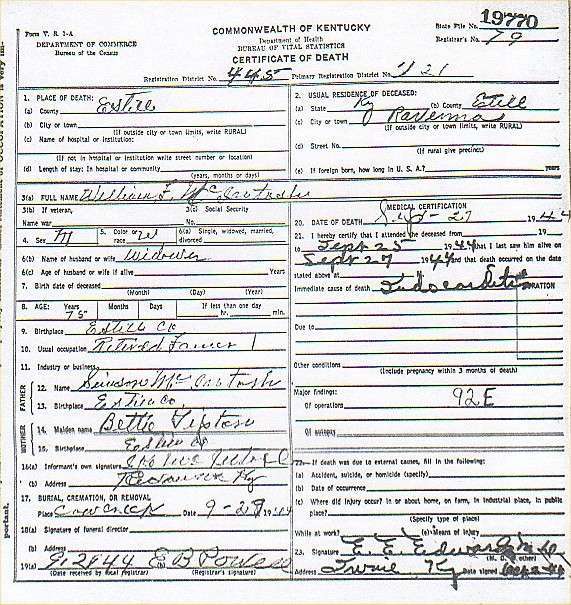 Form V. S. 1-A
DEPARTMENT OF COMMERCE
Bureau of the Census
COMMONWEALTH OF KENTUCKY
Department of Health
BUREAU OF VITAL STATISTICS
CERTIFICATE OF DEATH
State File No. 19770
Registrar's No. 79
Registration District No. 445 Primary Registration District No. 2121
1. PLACE OF DEATH:
(a) County Estill
(b) City or town
(If outside city or town limits, write RURAL)
(c) Name of hospital or institution:
(If not in hospital or institution write street number or location)
(d) Length of stay: In hospital or community
(years, months or days)
2. USUAL RESIDENCE OF DECEASED:
(a) State Ky (b) County Estill
(c) City or town Ravenna
(If outside city or town limits, write RURAL)
(d) Street No.
(If rural give precinct)
(e) If foreign born, how long in U. S. A.? years
3(a) FULL NAME William F. McIntosh
3(b) If veteran,
Name war
3(c) Social Security
No.
4. Sex M
5. Color or race W
6(a) Single, widowed, married, divorced
6(b) Name of husband or wife widower
6(c) Age of husband or wife if alive Years
7. Birth date of deceased
(Month) (Day) (Year)
8. AGE: Years Months Days If less than one day
75 hr. min.
9. Birthplace Estill Co
10. Usual occupation Retired Farmer
11. Industry or business
FATHER
12. Name Simson McIntosh
13. Birthplace Estill Co.
MOTHER
14. Maiden name Bettie Tipton
15. Birthplace Estill Co
16(a) Informant's own signature
(b) Address Ravenna Ky
17. BURIAL, CREMATION, OR REMOVAL
Place Cow Creek Date 9-29 1944
18(a) Signature of funeral director
(b) Address
19(a) E B Powell
(Date received by local registrar) (Registrar's signature)
MEDICAL CERTIFICATION
20. DATE OF DEATH 27 1944
21. I hereby certify that I attended the deceased from 19
to Sept 25 1944 that I last saw him alive on
Sept 27 1944 and that death occurred on the date
stated above at
Immediate cause of death Endocarditis DURATION
Due to
Other conditions
(Include pregnancy within 3 months of death)
Major findings:
Of operations 92E
Of autopsy
22. If death was due to external causes, fill in the following:
(a) Accident, suicide, or homicide (specify)
(b) Date of occurrence
(c) Where did injury occur? in or about home, on farm, in industrial place, in public place?
(Specify type of place)
While at work? (e) Means of injury
23. Signature E. E. Edwards M.D.
(M. D. or other)
Address Irvine Ky Date signed
portant.